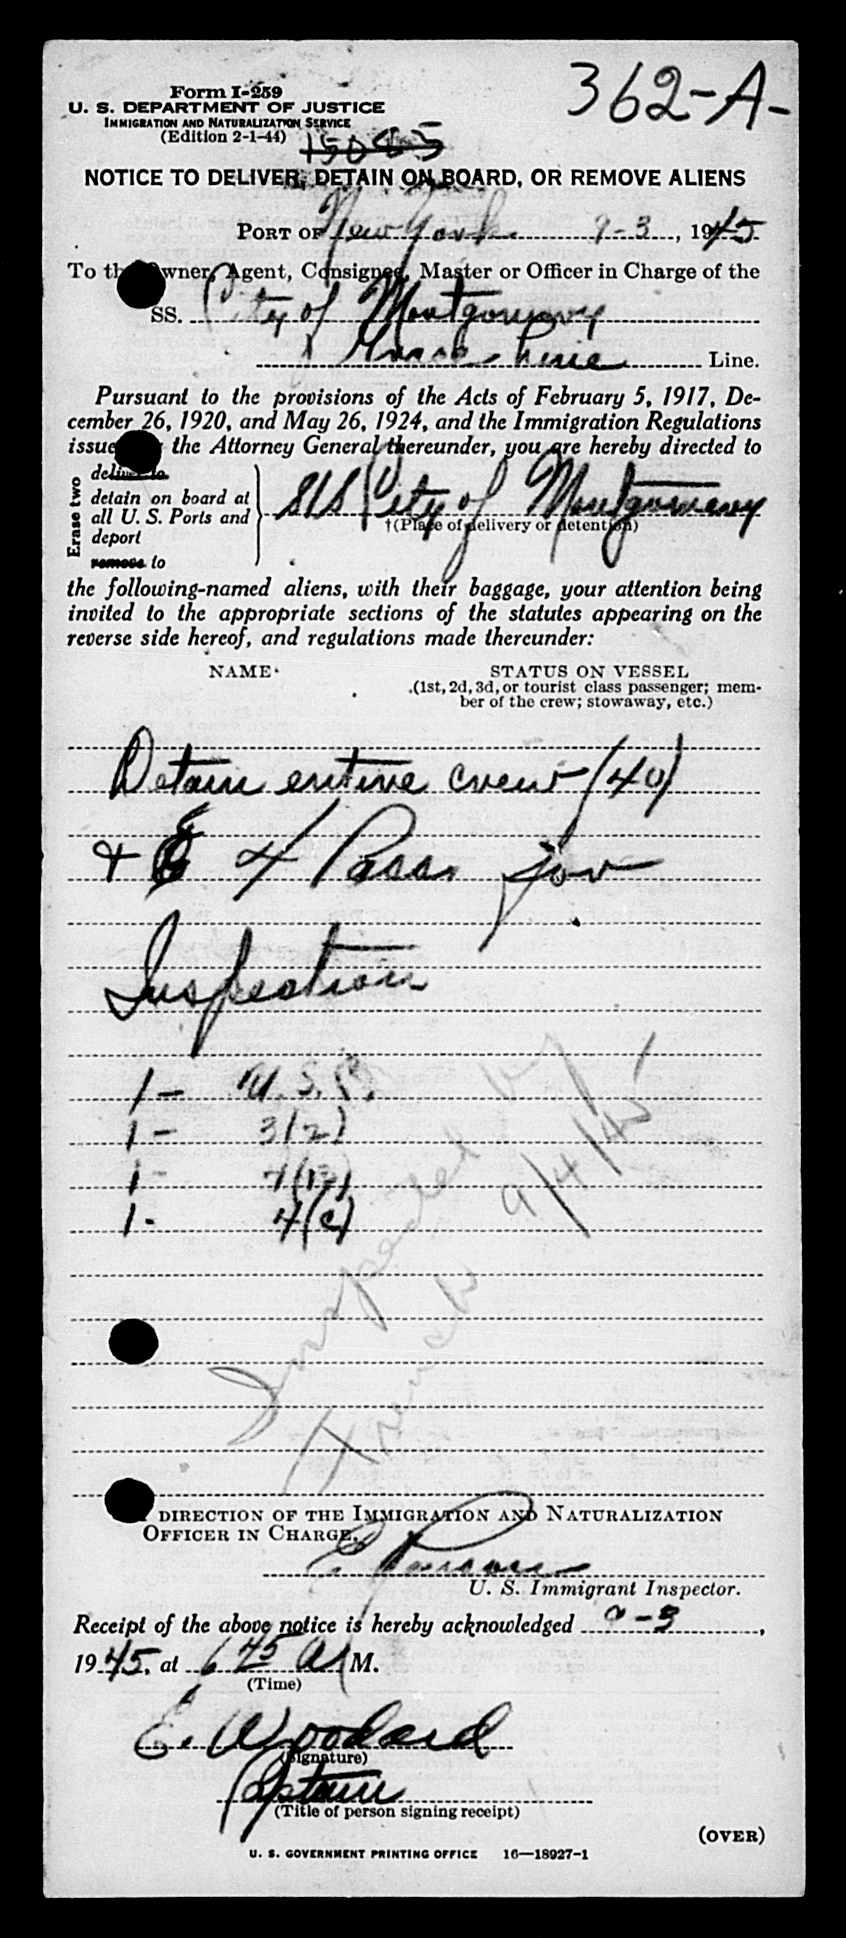 362-A-
Form I-259
U. S. DEPARTMENT OF JUSTICE
IMMIGRATION AND NATURALIZATION SERVICE
(Edition 2-1-44)
15085
NOTICE TO DELIVER, DETAIN ON BOARD, OR REMOVE ALIENS
PORT OF New York 9-3, 1945
To th wner, Agent, Consignee, Master or Officer in Charge of the
SS. City of Montgomery
Line.
Pursuant to the provisions of the Acts of February 5, 1917, De-
cember 26, 1920, and May 26, 1924, and the Immigration Regulations
issue the Attorney General thereunder, you are hereby directed to
Erase two
deliver to
detain on board at
all U. S. Ports and
deport
remove to
S/S City of Montgomery
†(Place of delivery or detention)
the following-named aliens, with their baggage, your attention being
invited to the appropriate sections of the statutes appearing on the
reverse side hereof, and regulations made thereunder:
NAME
STATUS ON VESSEL
(1st, 2d, 3d, or tourist class passenger; mem-
ber of the crew; stowaway, etc.)
Detain entire crew (40)
+ 4 Pass for
Inspection
1- U.S.
1- 3(2)
1-
1- 4(c)
Inspected by
9/4/45
DIRECTION OF THE IMMIGRATION AND NATURALIZATION
OFFICER IN CHARGE.
E.
U. S. Immigrant Inspector.
Receipt of the above notice is hereby acknowledged 9-3,
1945, at 6 45 A M.
(Time)
E. Woodard
(Signature)
Captain
(Title of person signing receipt)
(OVER)
U. S. GOVERNMENT PRINTING OFFICE 16—18927-1